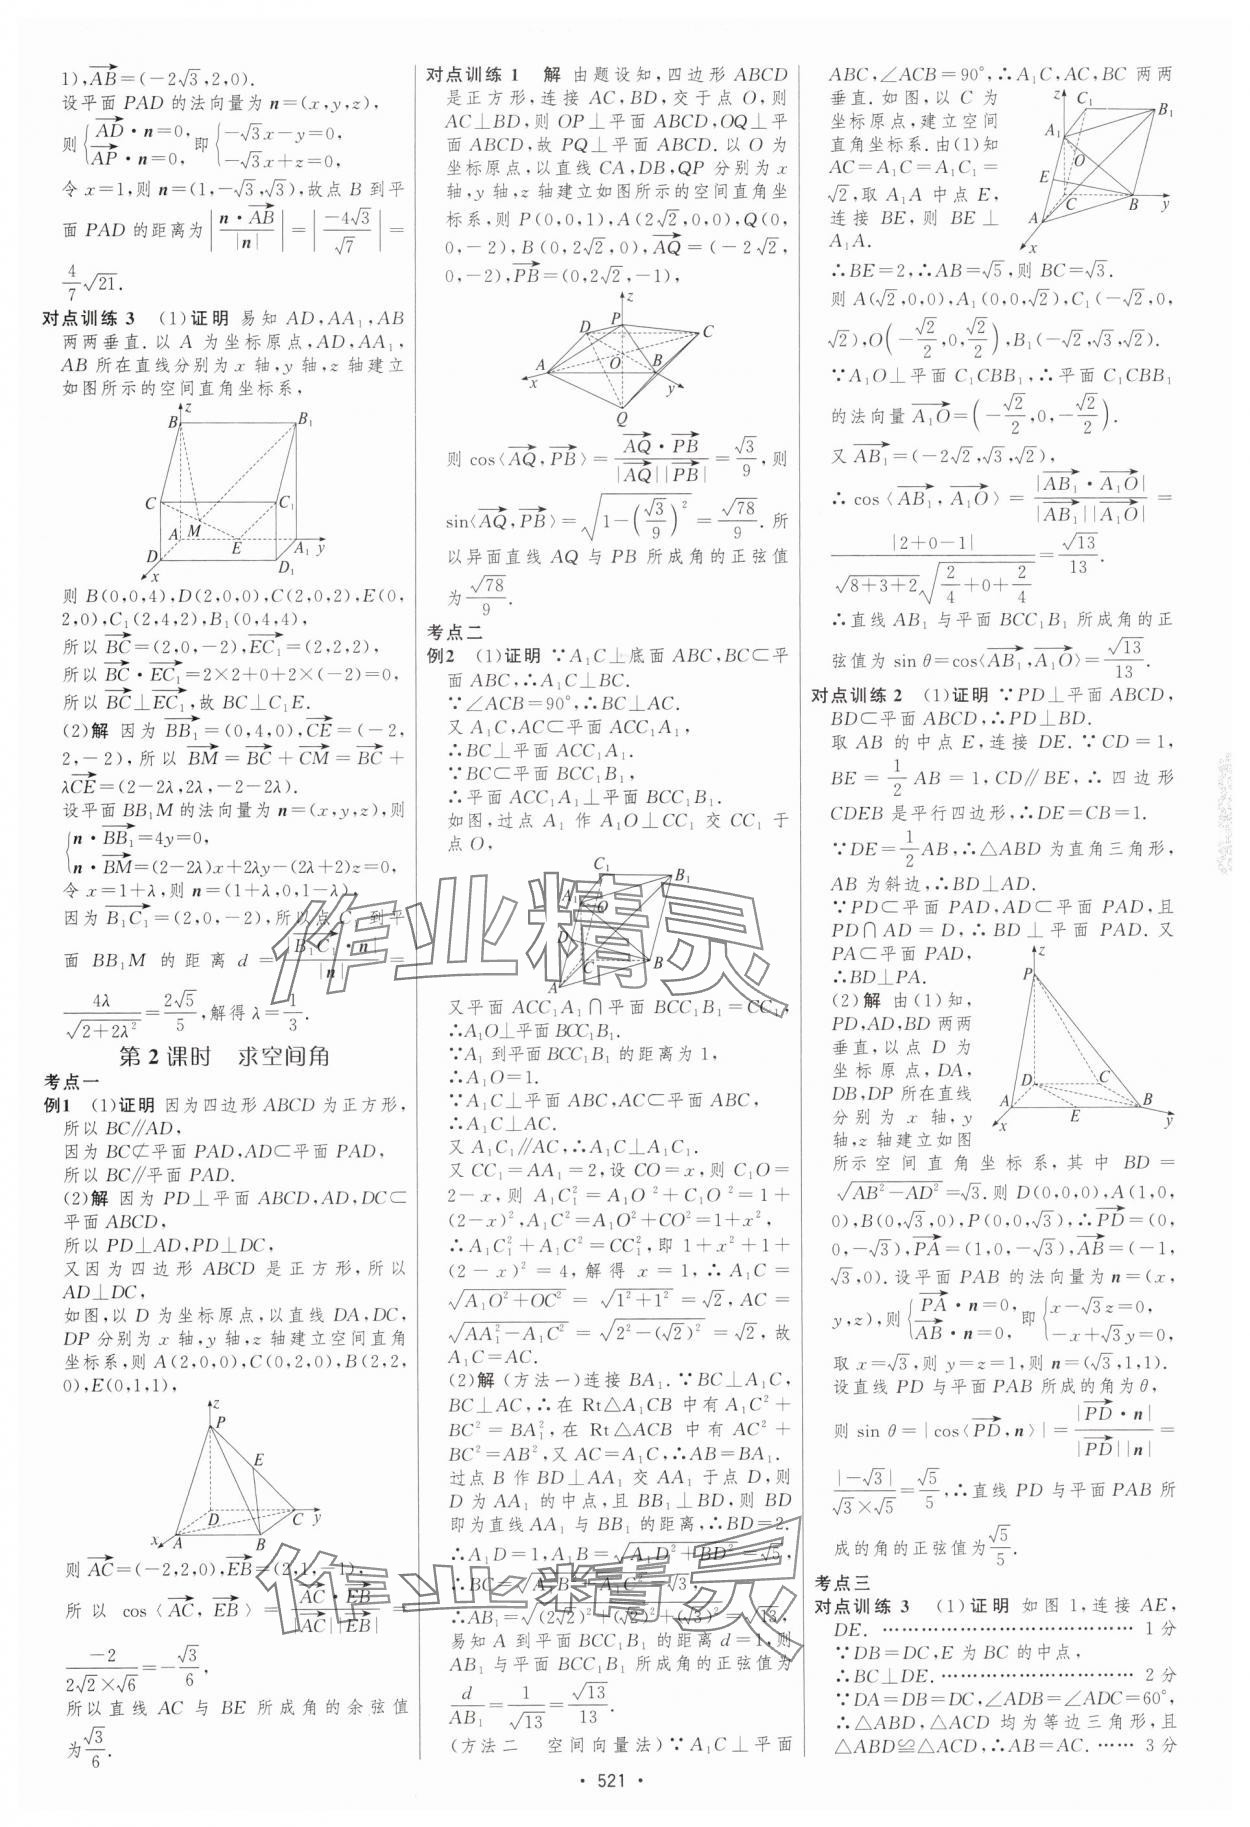 1),AB=(-2√3,2,0).
设平面 PAD 的法向量为 n=(x,y,z),
则{AD·n=0, 即{-√3x-y=0,
AP·n=0, -√3x+z=0,
令 x=1,则 n=(1,-√3,√3),故点 B 到平
面 PAD 的距离为|n·AB/|n||=|-4√3/√7|=
4/7√21.
对点训练 3 (1)证明 易知 AD,AA₁,AB
两两垂直.以 A 为坐标原点,AD,AA₁,
AB 所在直线分别为 x 轴,y 轴,z 轴建立
如图所示的空间直角坐标系,
z
B B₁
C C₁
A M E A₁ y
D D₁
x
则 B(0,0,4),D(2,0,0),C(2,0,2),E(0,
2,0),C₁(2,4,2),B₁(0,4,4),
所以 BC=(2,0,-2),EC₁=(2,2,2),
所以 BC·EC₁=2×2+0+2×(-2)=0,
所以 BC⊥EC₁,故 BC⊥C₁E.
(2)解 因为 BB₁=(0,4,0),CE=(-2,
2,-2),所以 BM=BC+CM=BC+
λCE=(2-2λ,2λ,-2-2λ).
设平面 BB₁M 的法向量为 n=(x,y,z),则
{n·BB₁=4y=0,
n·BM=(2-2λ)x+2λy-(2λ+2)z=0,
令 x=1+λ,则 n=(1+λ,0,1-λ).
因为 B₁C₁=(2,0,-2),所以点 C₁ 到平
面 BB₁M 的距离 d=|B₁C₁·n|/|n|=
4λ/√(2+2λ²)=2√5/5,解得 λ=1/3.
第 2 课时 求空间角
考点一
例1 (1)证明 因为四边形 ABCD 为正方形,
所以 BC∥AD,
因为 BC⊄平面 PAD,AD⊂平面 PAD,
所以 BC∥平面 PAD.
(2)解 因为 PD⊥平面 ABCD,AD,DC⊂
平面 ABCD,
所以 PD⊥AD,PD⊥DC,
又因为四边形 ABCD 是正方形,所以
AD⊥DC,
如图,以 D 为坐标原点,以直线 DA,DC,
DP 分别为 x 轴,y 轴,z 轴建立空间直角
坐标系,则 A(2,0,0),C(0,2,0),B(2,2,
0),E(0,1,1),
z
P
E
D C y
x A B
则 AC=(-2,2,0),EB=(2,1,-1),
所以 cos〈AC,EB〉=AC·EB/|AC||EB|=
-2/(2√2×√6)=-√3/6,
所以直线 AC 与 BE 所成角的余弦值
为√3/6.
对点训练 1 解 由题设知,四边形 ABCD
是正方形,连接 AC,BD,交于点 O,则
AC⊥BD,则 OP⊥平面 ABCD,OQ⊥平
面 ABCD,故 PQ⊥平面 ABCD.以 O 为
坐标原点,以直线 CA,DB,QP 分别为 x
轴,y 轴,z 轴建立如图所示的空间直角坐
标系,则 P(0,0,1),A(2√2,0,0),Q(0,
0,-2),B(0,2√2,0),AQ=(-2√2,
0,-2),PB=(0,2√2,-1),
z
D P C
A O B
x y
Q
则 cos〈AQ,PB〉=AQ·PB/|AQ||PB|=√3/9,则
sin〈AQ,PB〉=√(1-(√3/9)²)=√78/9.所
以异面直线 AQ 与 PB 所成角的正弦值
为√78/9.
考点二
例2 (1)证明 ∵A₁C⊥底面 ABC,BC⊂平
面 ABC,∴A₁C⊥BC.
∵∠ACB=90°,∴BC⊥AC.
又 A₁C,AC⊂平面 ACC₁A₁,
∴BC⊥平面 ACC₁A₁.
∵BC⊂平面 BCC₁B₁,
∴平面 ACC₁A₁⊥平面 BCC₁B₁.
如图,过点 A₁ 作 A₁O⊥CC₁ 交 CC₁ 于
点 O,
C₁ B₁
A₁ O
D
C B
A
又平面 ACC₁A₁∩平面 BCC₁B₁=CC₁,
∴A₁O⊥平面 BCC₁B₁.
∵A₁ 到平面 BCC₁B₁ 的距离为 1,
∴A₁O=1.
∵A₁C⊥平面 ABC,AC⊂平面 ABC,
∴A₁C⊥AC.
又 A₁C₁∥AC,∴A₁C⊥A₁C₁.
又 CC₁=AA₁=2,设 CO=x,则 C₁O=
2-x,则 A₁C₁²=A₁O²+C₁O²=1+
(2-x)²,A₁C²=A₁O²+CO²=1+x²,
∴A₁C₁²+A₁C²=CC₁²,即 1+x²+1+
(2-x)²=4,解得 x=1,∴A₁C=
√(A₁O²+OC²)=√(1²+1²)=√2,AC=
√(AA₁²-A₁C²)=√(2²-(√2)²)=√2,故
A₁C=AC.
(2)解 (方法一)连接 BA₁.∵BC⊥A₁C,
BC⊥AC,∴在 Rt△A₁CB 中有 A₁C²+
BC²=BA₁²,在 Rt△ACB 中有 AC²+
BC²=AB²,又 AC=A₁C,∴AB=BA₁.
过点 B 作 BD⊥AA₁ 交 AA₁ 于点 D,则
D 为 AA₁ 的中点,且 BB₁⊥BD,则 BD
即为直线 AA₁ 与 BB₁ 的距离,∴BD=2.
∴A₁D=1,A₁B=√(A₁D²+BD²)=√5,
∴BC=√(A₁B²-A₁C²)=√3,
∴AB₁=√((2√2)²+(√2)²+(√3)²)=√13,
易知 A 到平面 BCC₁B₁ 的距离 d=1,则
AB₁ 与平面 BCC₁B₁ 所成角的正弦值为
d/AB₁=1/√13=√13/13.
(方法二 空间向量法)∵A₁C⊥平面
ABC,∠ACB=90°,∴A₁C,AC,BC 两两
垂直.如图,以 C 为
坐标原点,建立空间
直角坐标系.由(1)知
AC=A₁C=A₁C₁=
√2,取 A₁A 中点 E,
连接 BE,则 BE⊥
A₁A.
z C₁ B₁
A₁
O
E
A C B y
x
∴BE=2,∴AB=√5,则 BC=√3.
则 A(√2,0,0),A₁(0,0,√2),C₁(-√2,0,
√2),O(-√2/2,0,√2/2),B₁(-√2,√3,√2).
∵A₁O⊥平面 C₁CBB₁,∴平面 C₁CBB₁
的法向量 A₁O=(-√2/2,0,-√2/2).
又 AB₁=(-2√2,√3,√2),
∴cos〈AB₁,A₁O〉=|AB₁·A₁O|/|AB₁||A₁O|=
|2+0-1|/(√(8+3+2)√(2/4+0+2/4))=√13/13.
∴直线 AB₁ 与平面 BCC₁B₁ 所成角的正
弦值为 sin θ=cos〈AB₁,A₁O〉=√13/13.
对点训练2 (1)证明 ∵PD⊥平面 ABCD,
BD⊂平面 ABCD,∴PD⊥BD.
取 AB 的中点 E,连接 DE.∵CD=1,
BE=1/2 AB=1,CD∥BE,∴四边形
CDEB 是平行四边形,∴DE=CB=1.
∵DE=1/2AB,∴△ABD 为直角三角形,
AB 为斜边,∴BD⊥AD.
∵PD⊂平面 PAD,AD⊂平面 PAD,且
PD∩AD=D,∴BD⊥平面 PAD.又
PA⊂平面 PAD,
∴BD⊥PA.
(2)解 由(1)知,
PD,AD,BD 两两
垂直,以点 D 为坐
标原点,DA,
DB,DP 所在直线
分别为 x 轴,y
轴,z 轴建立如图
z
P
D C
A E B
x y
所示空间直角坐标系,其中 BD=
√(AB²-AD²)=√3.则 D(0,0,0),A(1,0,
0),B(0,√3,0),P(0,0,√3),∴PD=(0,
0,-√3),PA=(1,0,-√3),AB=(-1,
√3,0).设平面 PAB 的法向量为 n=(x,
y,z),则{PA·n=0, 即{x-√3z=0,
AB·n=0, -x+√3y=0,
取 x=√3,则 y=z=1,则 n=(√3,1,1).
设直线 PD 与平面 PAB 所成的角为 θ,
则 sin θ=|cos〈PD,n〉|=|PD·n|/|PD||n|=
|-√3|/(√3×√5)=√5/5,∴直线 PD 与平面 PAB 所
成的角的正弦值为√5/5.
考点三
对点训练 3 (1)证明 如图 1,连接 AE,
DE. …………………………………… 1 分
∵DB=DC,E 为 BC 的中点,
∴BC⊥DE. ………………………… 2 分
∵DA=DB=DC,∠ADB=∠ADC=60°,
∴△ABD,△ACD 均为等边三角形,且
△ABD≌△ACD,∴AB=AC. …… 3 分
作业精灵
作业精灵
· 521 ·